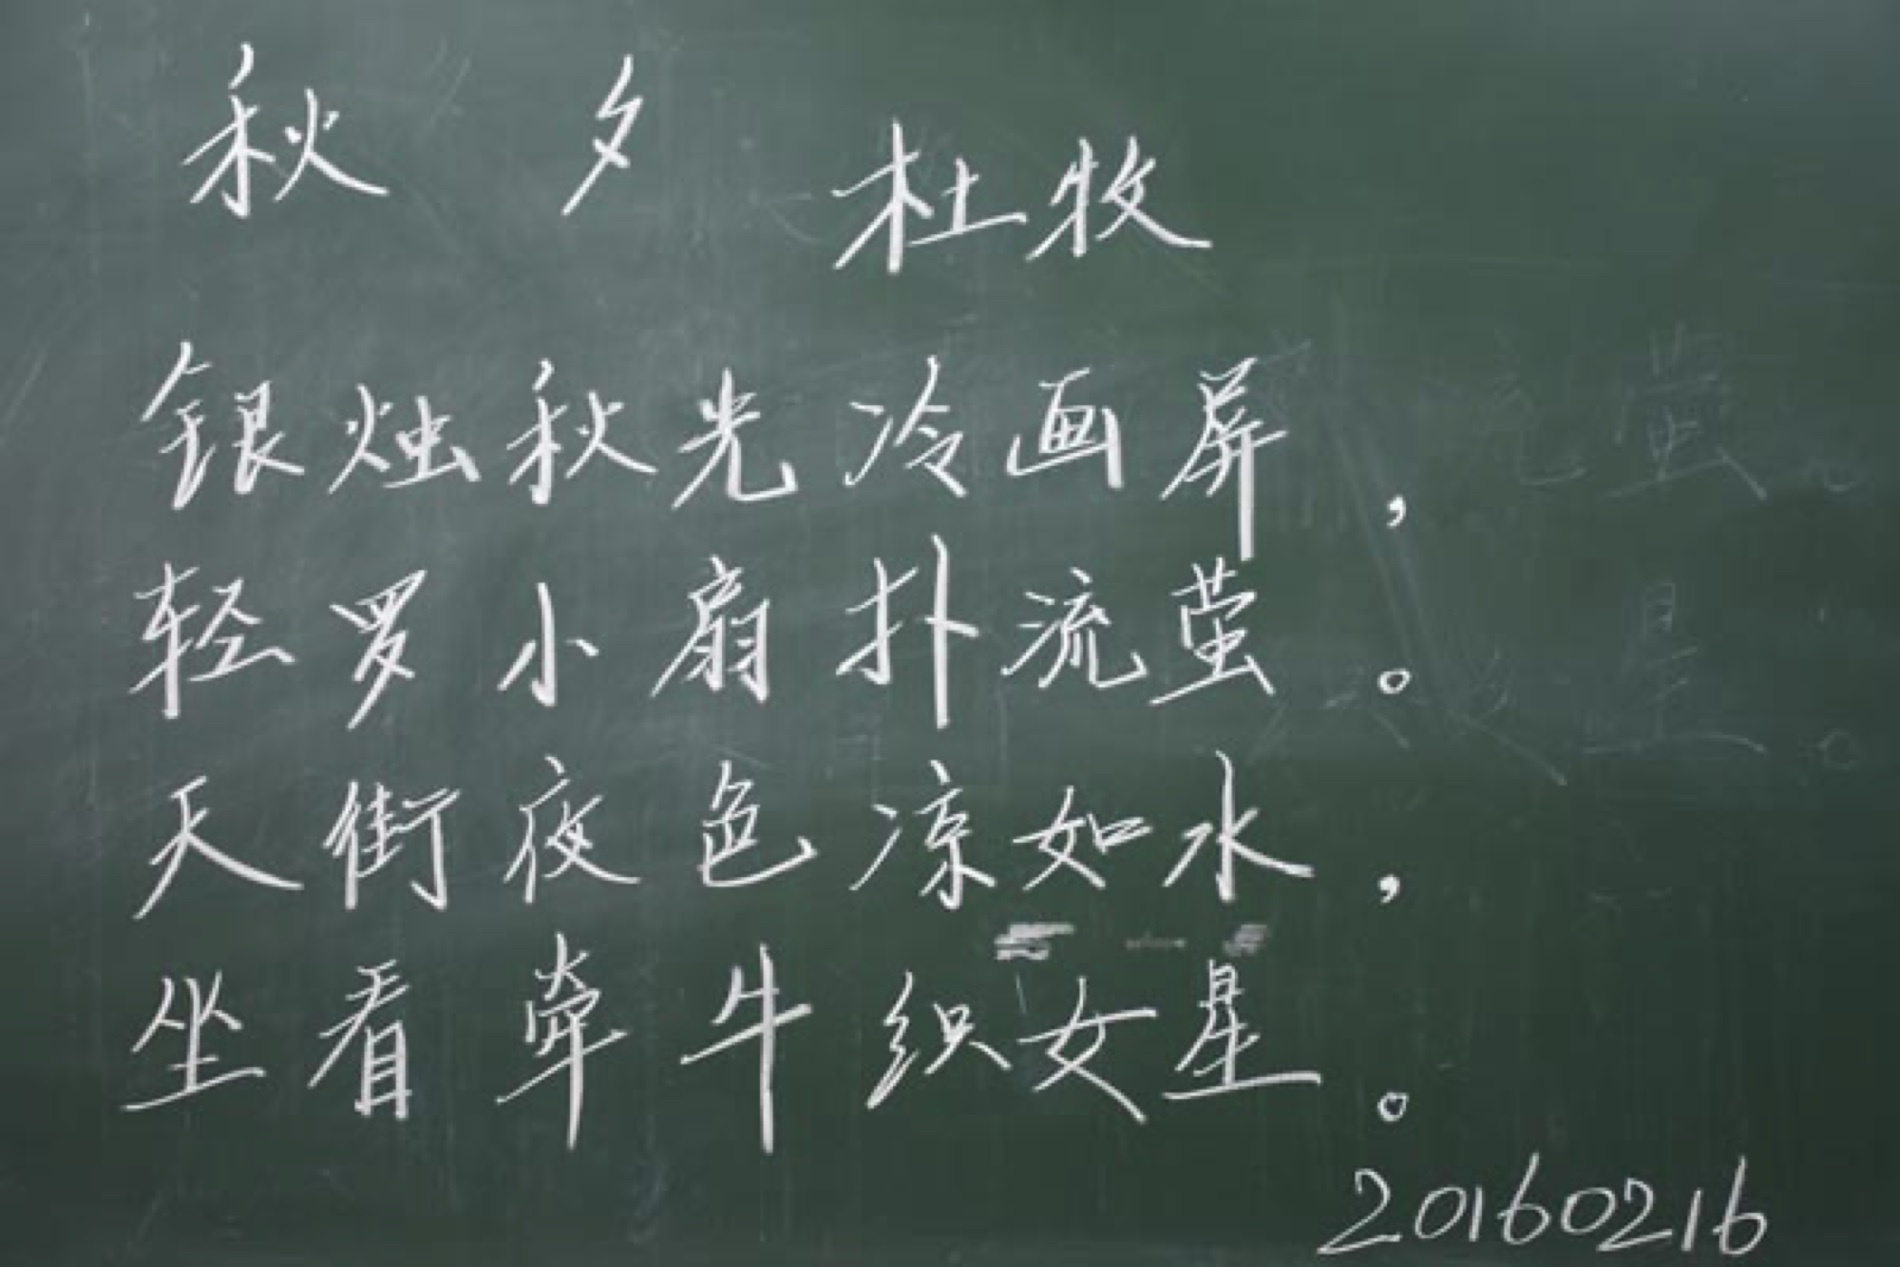 秋 夕 杜牧
银烛秋光冷画屏，
轻罗小扇扑流萤。
天街夜色凉如水，
坐看牵牛织女星。
20160216